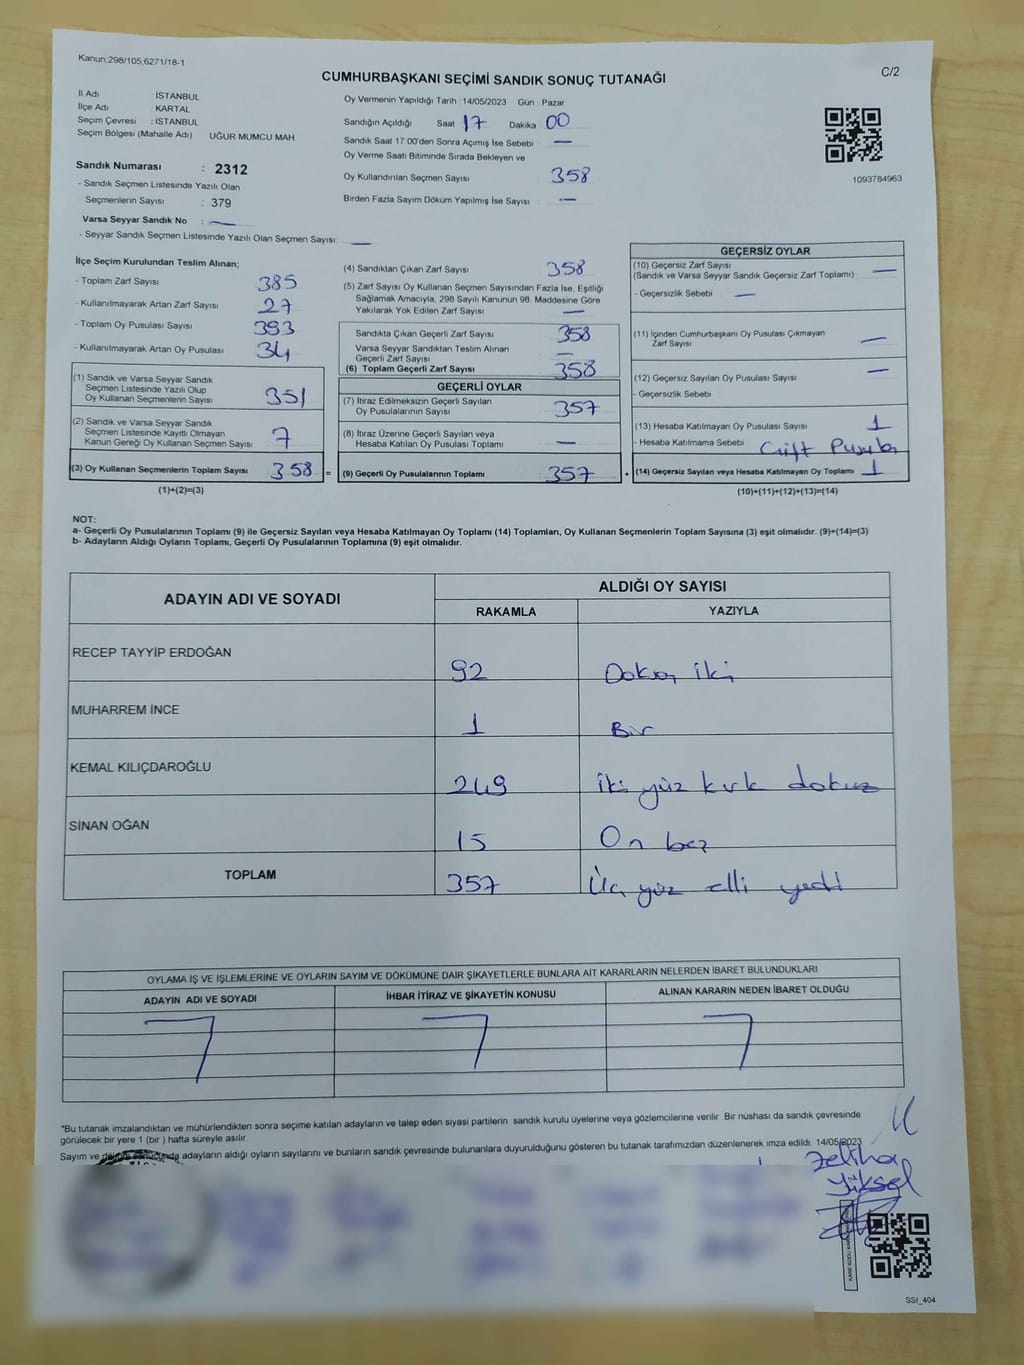 Kanun:298/105,6271/18-1
CUMHURBAŞKANI SEÇİMİ SANDIK SONUÇ TUTANAĞI
C/2
İl Adı : İSTANBUL
İlçe Adı : KARTAL
Seçim Çevresi : İSTANBUL
Seçim Bölgesi (Mahalle Adı) UĞUR MUMCU MAH
Sandık Numarası : 2312
- Sandık Seçmen Listesinde Yazılı Olan
Seçmenlerin Sayısı : 379
Varsa Seyyar Sandık No : —
- Seyyar Sandık Seçmen Listesinde Yazılı Olan Seçmen Sayısı: —
Oy Vermenin Yapıldığı Tarih : 14/05/2023 Gün : Pazar
Sandığın Açıldığı Saat 17 Dakika 00
Sandık Saat 17 00'den Sonra Açımış İse Sebebi : —
Oy Verme Saati Bitiminde Sırada Bekleyen ve
Oy Kullandırılan Seçmen Sayısı : 358
Birden Fazla Sayım Döküm Yapılmış İse Sayısı : —
1093784963
İlçe Seçim Kurulundan Teslim Alınan;
- Toplam Zarf Sayısı : 385
- Kullanılmayarak Artan Zarf Sayısı : 27
- Toplam Oy Pusulası Sayısı : 393
- Kullanılmayarak Artan Oy Pusulası : 34
(1) Sandık ve Varsa Seyyar Sandık
Seçmen Listesinde Yazılı Olup
Oy Kullanan Seçmenlerin Sayısı : 351
(2) Sandık ve Varsa Seyyar Sandık
Seçmen Listesinde Kayıtlı Olmayan
Kanun Gereği Oy Kullanan Seçmen Sayısı : 7
(3) Oy Kullanan Seçmenlerin Toplam Sayısı : 358 =
(1)+(2)=(3)
(4) Sandıktan Çıkan Zarf Sayısı : 358
(5) Zarf Sayısı Oy Kullanan Seçmen Sayısından Fazla İse, Eşitliği
Sağlamak Amacıyla, 298 Sayılı Kanunun 98. Maddesine Göre
Yakılarak Yok Edilen Zarf Sayısı : —
Sandıkta Çıkan Geçerli Zarf Sayısı : 358
Varsa Seyyar Sandıktan Teslim Alınan
Geçerli Zarf Sayısı : —
(6) Toplam Geçerli Zarf Sayısı : 358
GEÇERLİ OYLAR
(7) İtiraz Edilmeksizin Geçerli Sayılan
Oy Pusulalarının Sayısı : 357
(8) İtiraz Üzerine Geçerli Sayılan veya
Hesaba Katılan Oy Pusulası Toplamı : —
(9) Geçerli Oy Pusulalarının Toplamı : 357 +
GEÇERSİZ OYLAR
(10) Geçersiz Zarf Sayısı
(Sandık ve Varsa Seyyar Sandık Geçersiz Zarf Toplamı) : —
- Geçersizlik Sebebi : —
(11) İçinden Cumhurbaşkanı Oy Pusulası Çıkmayan
Zarf Sayısı : —
(12) Geçersiz Sayılan Oy Pusulası Sayısı : —
- Geçersizlik Sebebi :
(13) Hesaba Katılmayan Oy Pusulası Sayısı : 1
- Hesaba Katılmama Sebebi : Çift Pusula
(14) Geçersiz Sayılan veya Hesaba Katılmayan Oy Toplamı : 1
(10)+(11)+(12)+(13)=(14)
NOT:
a- Geçerli Oy Pusulalarının Toplamı (9) ile Geçersiz Sayılan veya Hesaba Katılmayan Oy Toplamı (14) Toplamları, Oy Kullanan Seçmenlerin Toplam Sayısına (3) eşit olmalıdır. (9)+(14)=(3)
b- Adayların Aldığı Oyların Toplamı, Geçerli Oy Pusulalarının Toplamına (9) eşit olmalıdır.
ADAYIN ADI VE SOYADI
ALDIĞI OY SAYISI
RAKAMLA YAZIYLA
RECEP TAYYİP ERDOĞAN 92 Doksan iki
MUHARREM İNCE 1 Bir
KEMAL KILIÇDAROĞLU 249 iki yüz kırk dokuz
SİNAN OĞAN 15 On beş
TOPLAM 357 Üç yüz elli yedi
OYLAMA İŞ VE İŞLEMLERİNE VE OYLARIN SAYIM VE DÖKÜMÜNE DAİR ŞİKAYETLERLE BUNLARA AİT KARARLARIN NELERDEN İBARET BULUNDUKLARI
ADAYIN ADI VE SOYADI İHBAR İTİRAZ VE ŞİKAYETİN KONUSU ALINAN KARARIN NEDEN İBARET OLDUĞU
*Bu tutanak imzalandıktan ve mühürlendikten sonra seçime katılan adayların ve talep eden siyasi partilerin sandık kurulu üyelerine veya gözlemcilerine verilir. Bir nüshası da sandık çevresinde
görülecek bir yere 1 (bir ) hafta süreyle asılır.
Sayım ve döküm sonucunda adayların aldığı oyların sayılarını ve bunların sandık çevresinde bulunanlara duyurulduğunu gösteren bu tutanak tarafımızdan düzenlenerek imza edildi. 14/05/2023
Zeliha
Yüksel
SSI_404